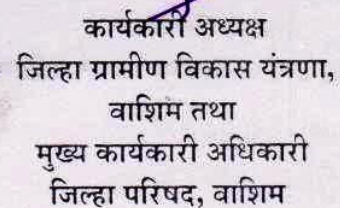 कार्यकारी अध्यक्ष
जिल्हा ग्रामीण विकास यंत्रणा,
वाशिम तथा
मुख्य कार्यकारी अधिकारी
जिल्हा परिषद, वाशिम